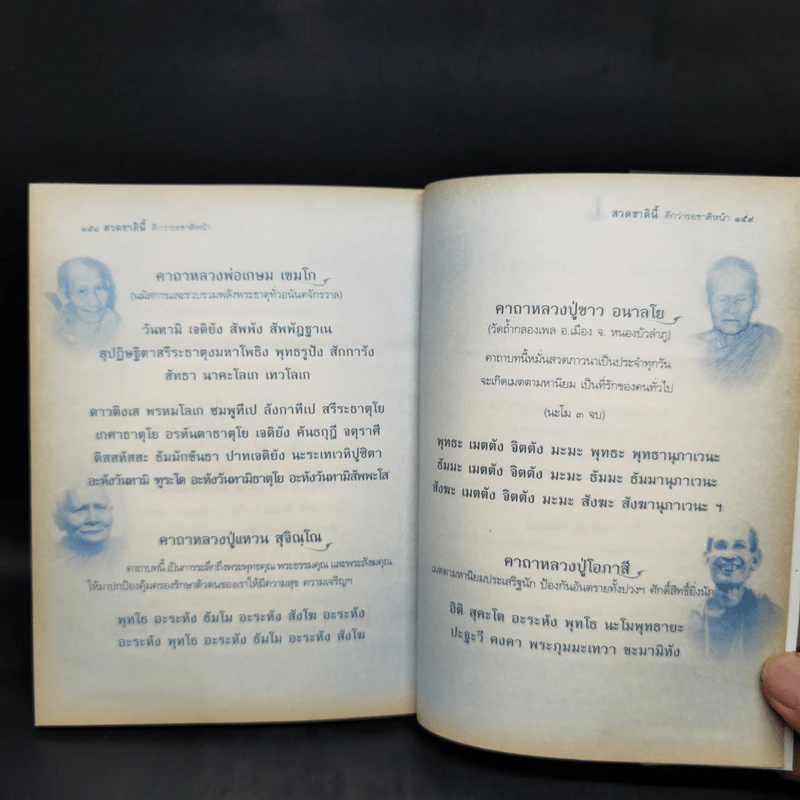 ๑๕๘ สวดชาตินี้ ดีกว่ารอชาติหน้า
คาถาหลวงพ่อเกษม เขมโก
(นมัสการและรวบรวมพลังพระธาตุทั่วอนันตจักรวาล)
วันทามิ เจดิยัง สัพพัง สัพพัฏฐาเน
สุปฏิษฐิตาสรีระธาตุงมหาโพธิง พุทธรูปัง สักการัง
สัทธา นาคะโลเก เทวโลเก
ดาวดิงเส พรหมโลเก ชมพูทีเป ลังกาทีเป สรีระธาตุโย
เกศาธาตุโย อรหันตาธาตุโย เจดิยัง คันธกุฎี จตุราศี
ติสสหัสสะ ธัมมักขันธา ปาทเจดิยัง นะระเทเวหิปูชิตา
อะหังวันทามิ ฑูระโต อะหังวันทามิธาตุโย อะหังวันทามิสัพพะโส
คาถาหลวงปู่แหวน สุจิณฺโณ
คาถาบทนี้ เป็นการระลึกถึงพระพุทธคุณ พระธรรมคุณ และพระสังฆคุณ
ให้มาปกป้องคุ้มครองรักษาตัวตนของเราให้มีความสุข ความเจริญฯ
พุทโธ อะระหัง ธัมโม อะระหัง สังโฆ อะระหัง
อะระหัง พุทโธ อะระหัง ธัมโม อะระหัง สังโฆ
สวดชาตินี้ ดีกว่ารอชาติหน้า ๑๕๙
คาถาหลวงปู่ขาว อนาลโย
(วัดถ้ำกลองเพล อ.เมือง จ. หนองบัวลำภู)
คาถาบทนี้หมั่นสวดภาวนาเป็นประจำทุกวัน
จะเกิดเมตตามหานิยม เป็นที่รักของคนทั่วไป
(นะโม ๓ จบ)
พุทธะ เมตตัง จิตตัง มะมะ พุทธะ พุทธานุภาเวนะ
ธัมมะ เมตตัง จิตตัง มะมะ ธัมมะ ธัมมานุภาเวนะ
สังฆะ เมตตัง จิตตัง มะมะ สังฆะ สังฆานุภาเวนะ ฯ
คาถาหลวงปู่โอภาสี
เมตตามหานิยมประเสริฐนัก ป้องกันอันตรายทั้งปวงฯ ศักดิ์สิทธิ์ยิ่งนัก
อิติ สุคะโต อะระหัง พุทโธ นะโมพุทธายะ
ปะฐะวี คงคา พระภุมมะเทวา ขะมามิหัง